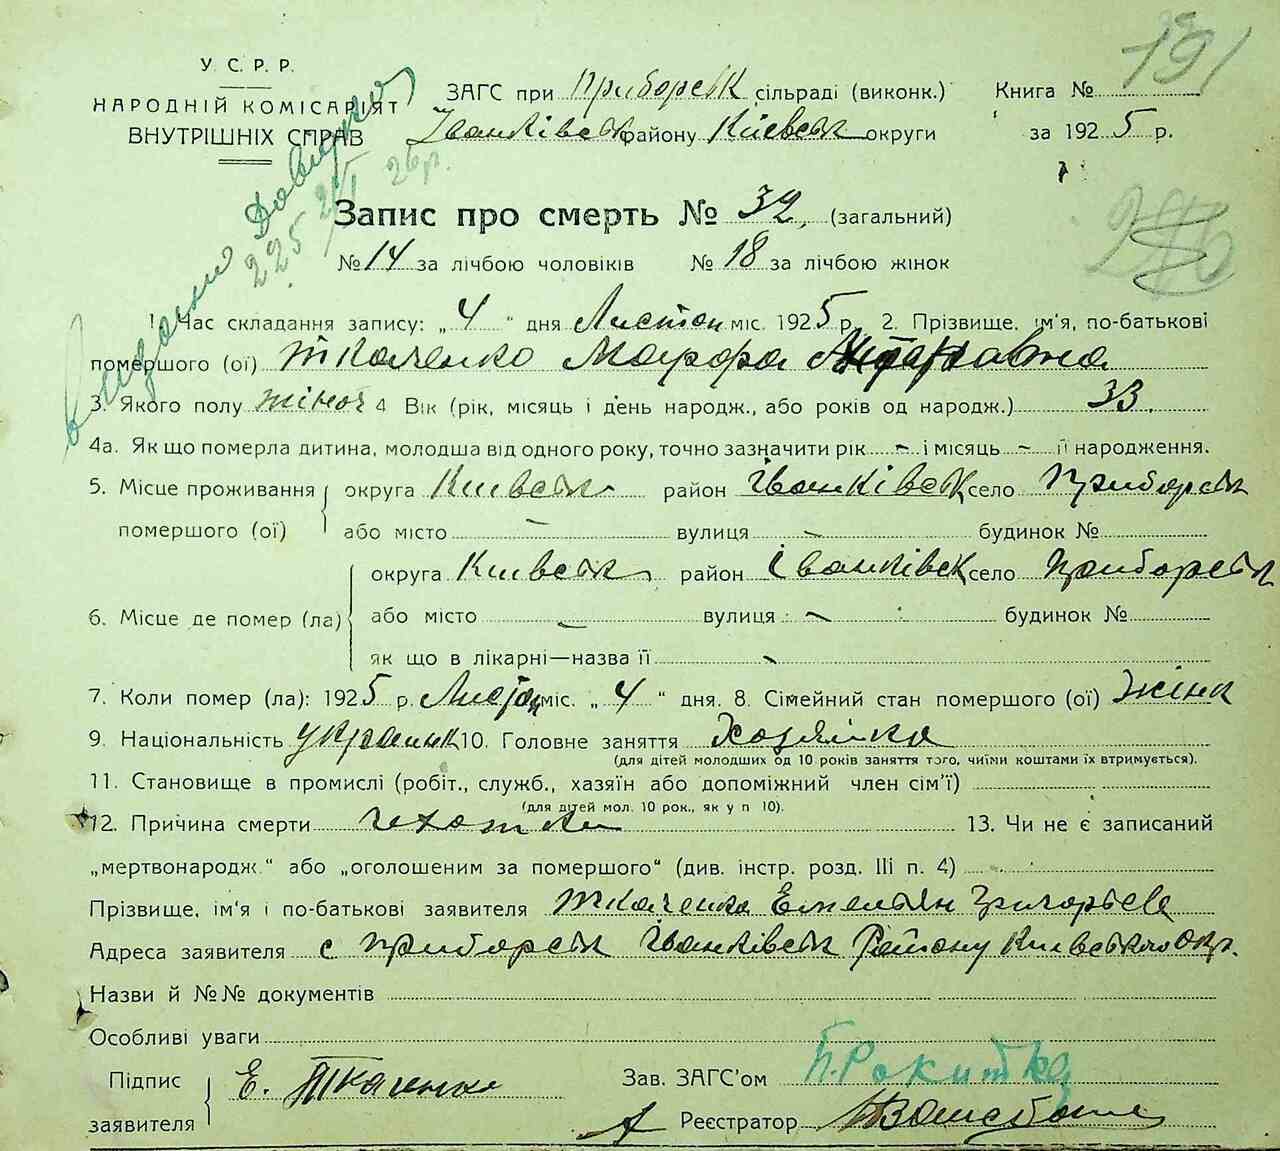 191
У. С. Р. Р.
НАРОДНІЙ КОМІСАРІЯТ
ВНУТРІШНІХ СПРАВ
ЗАГС при Приборськ сільраді (виконк.) Книга №
Іванківськ району Київськ округи за 1925 р.
Запис про смерть № 32, (загальний)
№ 14 за лічбою чоловіків № 18 за лічбою жінок
1. Час складання запису: „4“ дня Листоп міс. 1925 р. 2. Прізвище, ім'я, по-батькові
помершого (ої) Ткаченко Марфа
3. Якого полу жіноч 4 Вік (рік, місяць і день народж., або років од народж.) 33.
4а. Як що померла дитина, молодша від одного року, точно зазначити рік – і місяць – її народження.
5. Місце проживання помершого (ої) округа Київськ район Іванківськ село Приборськ
або місто – вулиця – будинок №
6. Місце де помер (ла) округа Київськ район Іванківськ село Приборськ
або місто – вулиця – будинок №
як що в лікарні—назва її –
7. Коли помер (ла): 1925 р. Листоп міс. „4“ дня. 8. Сімейний стан помершого (ої) Жінк
9. Національність українк 10. Головне заняття Хозяйка
(для дітей молодших од 10 років заняття того, чиїми коштами їх втримується).
11. Становище в промислі (робіт., служб., хазяїн або допоміжний член сім'ї)
(для дітей мол. 10 рок., як у п 10).
12. Причина смерти чехотка 13. Чи не є записаний
„мертвонародж.“ або „оголошеним за помершого“ (див. інстр. розд. III п. 4)
Прізвище, ім'я і по-батькові заявителя Ткаченко Емельян Григорьев
Адреса заявителя с Приборськ Іванківськ Району Київського Окр.
Назви й №№ документів
Особливі уваги
Підпис заявителя Е. Ткаченко Зав. ЗАГС'ом П. Рокитка
Реєстратор